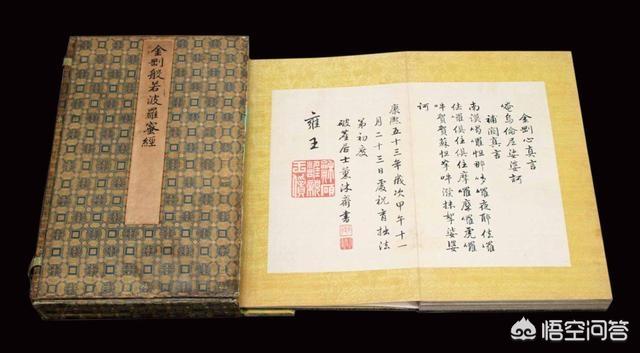 金剛般若波羅蜜經
金剛心真言
唵烏倫尼娑婆訶
補闕真言
南漠喝囉怛那哆囉夜耶佉囉
佉囉俱住俱住摩囉摩囉虎囉
吽賀賀蘇怛拏吽潑抹拏娑婆
訶
康熙五十三年歲次甲午十一
月二十三日慶祝育拙法
第初度
破塵居士薰沐齋書
雍王
悟空问答